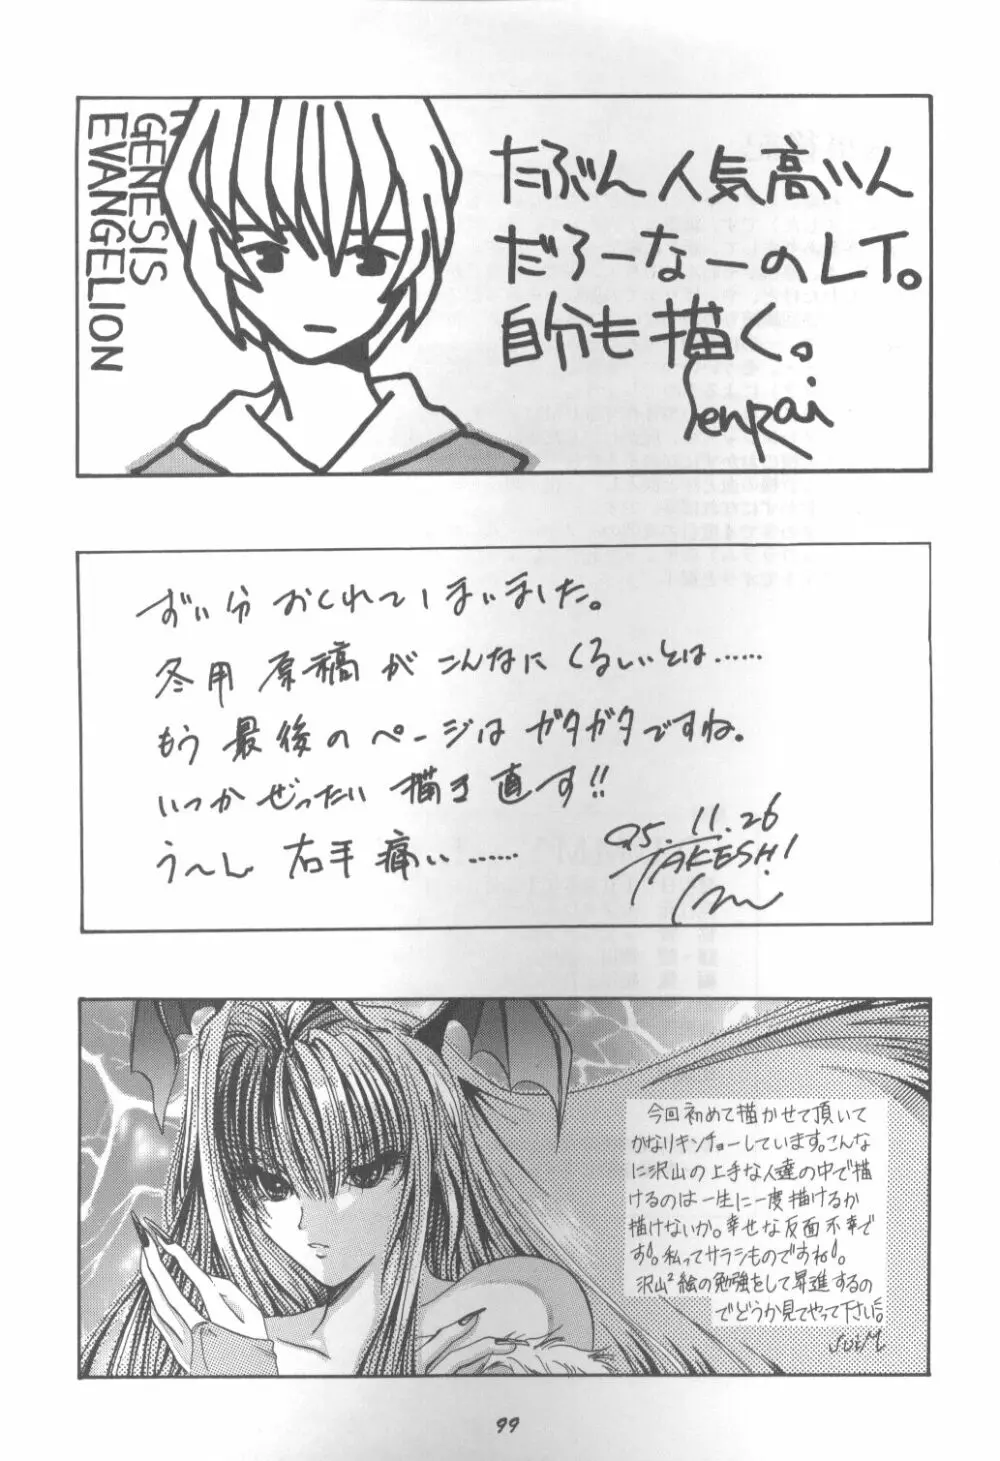 GENESIS
EVANGELION
たぶん人気高いん
だろーなーのLT。
自分も描く。
Senpai
ずい分おくれてしまいました。
冬用原稿がこんなにくるしいとは……
もう最後のページはガタガタですね。
いつかぜったい描き直す!!
う〜ん右手痛い……
95.11.26
TAKESHI
今回初めて描かせて頂いて
かなりキンチョーしています。こんな
に沢山の上手な人達の中で描
けるのは一生に一度描けるか
描けないか。幸せな反面不幸で
す!。私ってサラシものですね!。
沢山²絵の勉強をして昇進するの
でどうか見てやって下さい。
SuiM
99